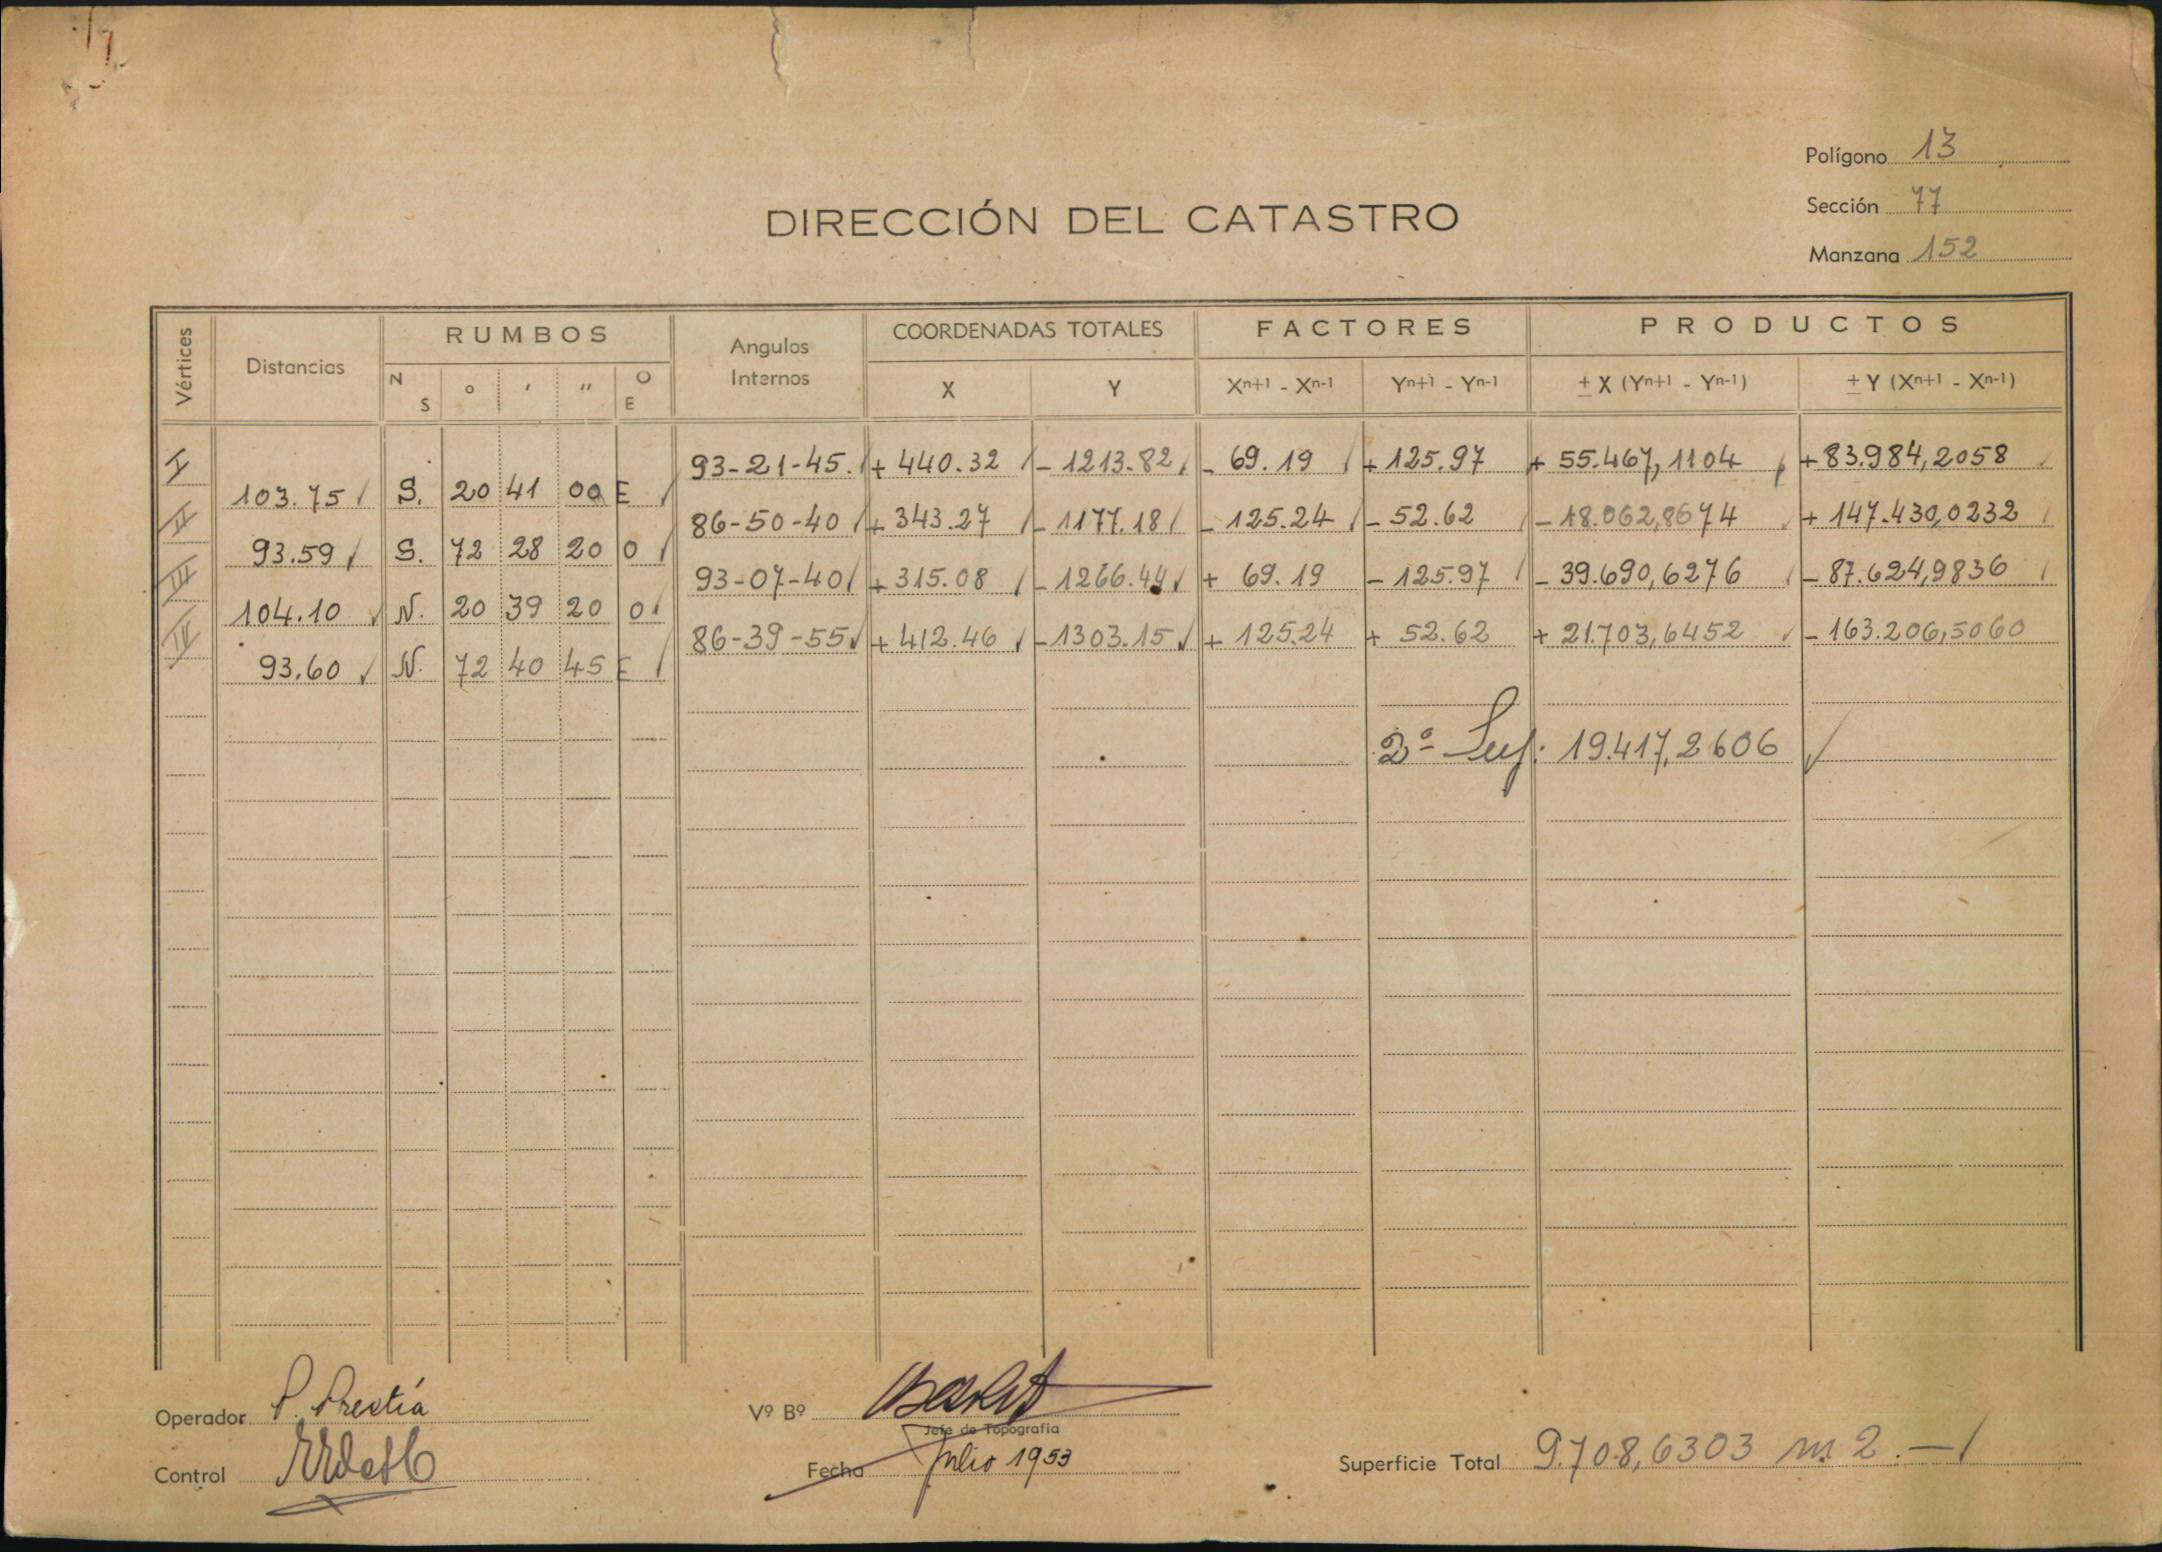 Polígono 13
Sección 77
Manzana 152
DIRECCIÓN DEL CATASTRO
Vértices Distancias RUMBOS Angulos Internos COORDENADAS TOTALES FACTORES PRODUCTOS
N S o ' " O E X Y Xn+1 - Xn-1 Yn+1 - Yn-1 ± X (Yn+1 - Yn-1) ± Y (Xn+1 - Xn-1)
I 93-21-45. + 440.32 - 1213.82 - 69.19 + 125.97 + 55.467,1104 + 83.984,2058
103.75 S. 20 41 00 E
II 86-50-40 + 343.27 - 1177.18 - 125.24 - 52.62 - 18.062,8674 + 147.430,0232
93.59 S. 72 28 20 O
III 93-07-40 + 315.08 - 1266.44 + 69.19 - 125.97 - 39.690,6276 - 87.624,9836
104.10 N. 20 39 20 O
IV 86-39-55 + 412.46 - 1303.15 + 125.24 + 52.62 + 21.703,6452 - 163.206,5060
93.60 N. 72 40 45 E
2ª Sup: 19.417,2606
Operador P. Prestía
Vº Bº
Jefe de Topografía
Control
Fecha Julio 1953
Superficie Total 9.708,6303 m2.—